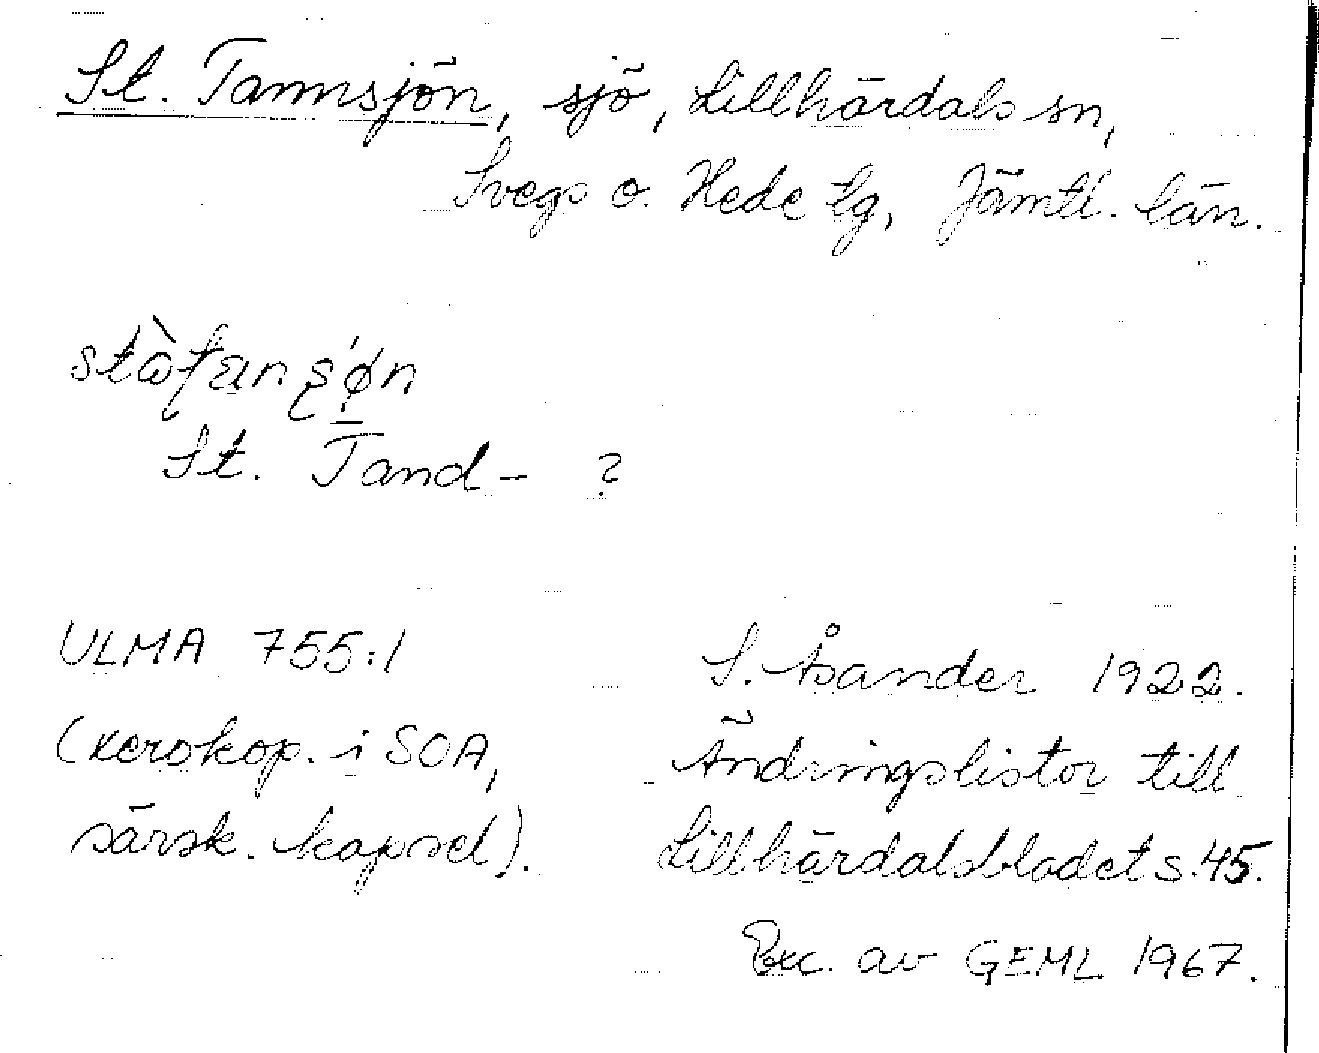 St. Tannsjön, sjö, Lillhärdals sn,
Svegs o. Hede tg, Jämtl. län.
St. Tand- ?
ULMA 755:1
(xerokop. i SOA,
särsk. kapsel).
S. Åsander 1922.
Ändringslistor till
Lillhärdalsbladet s. 45.
Exc. av GEML 1967.